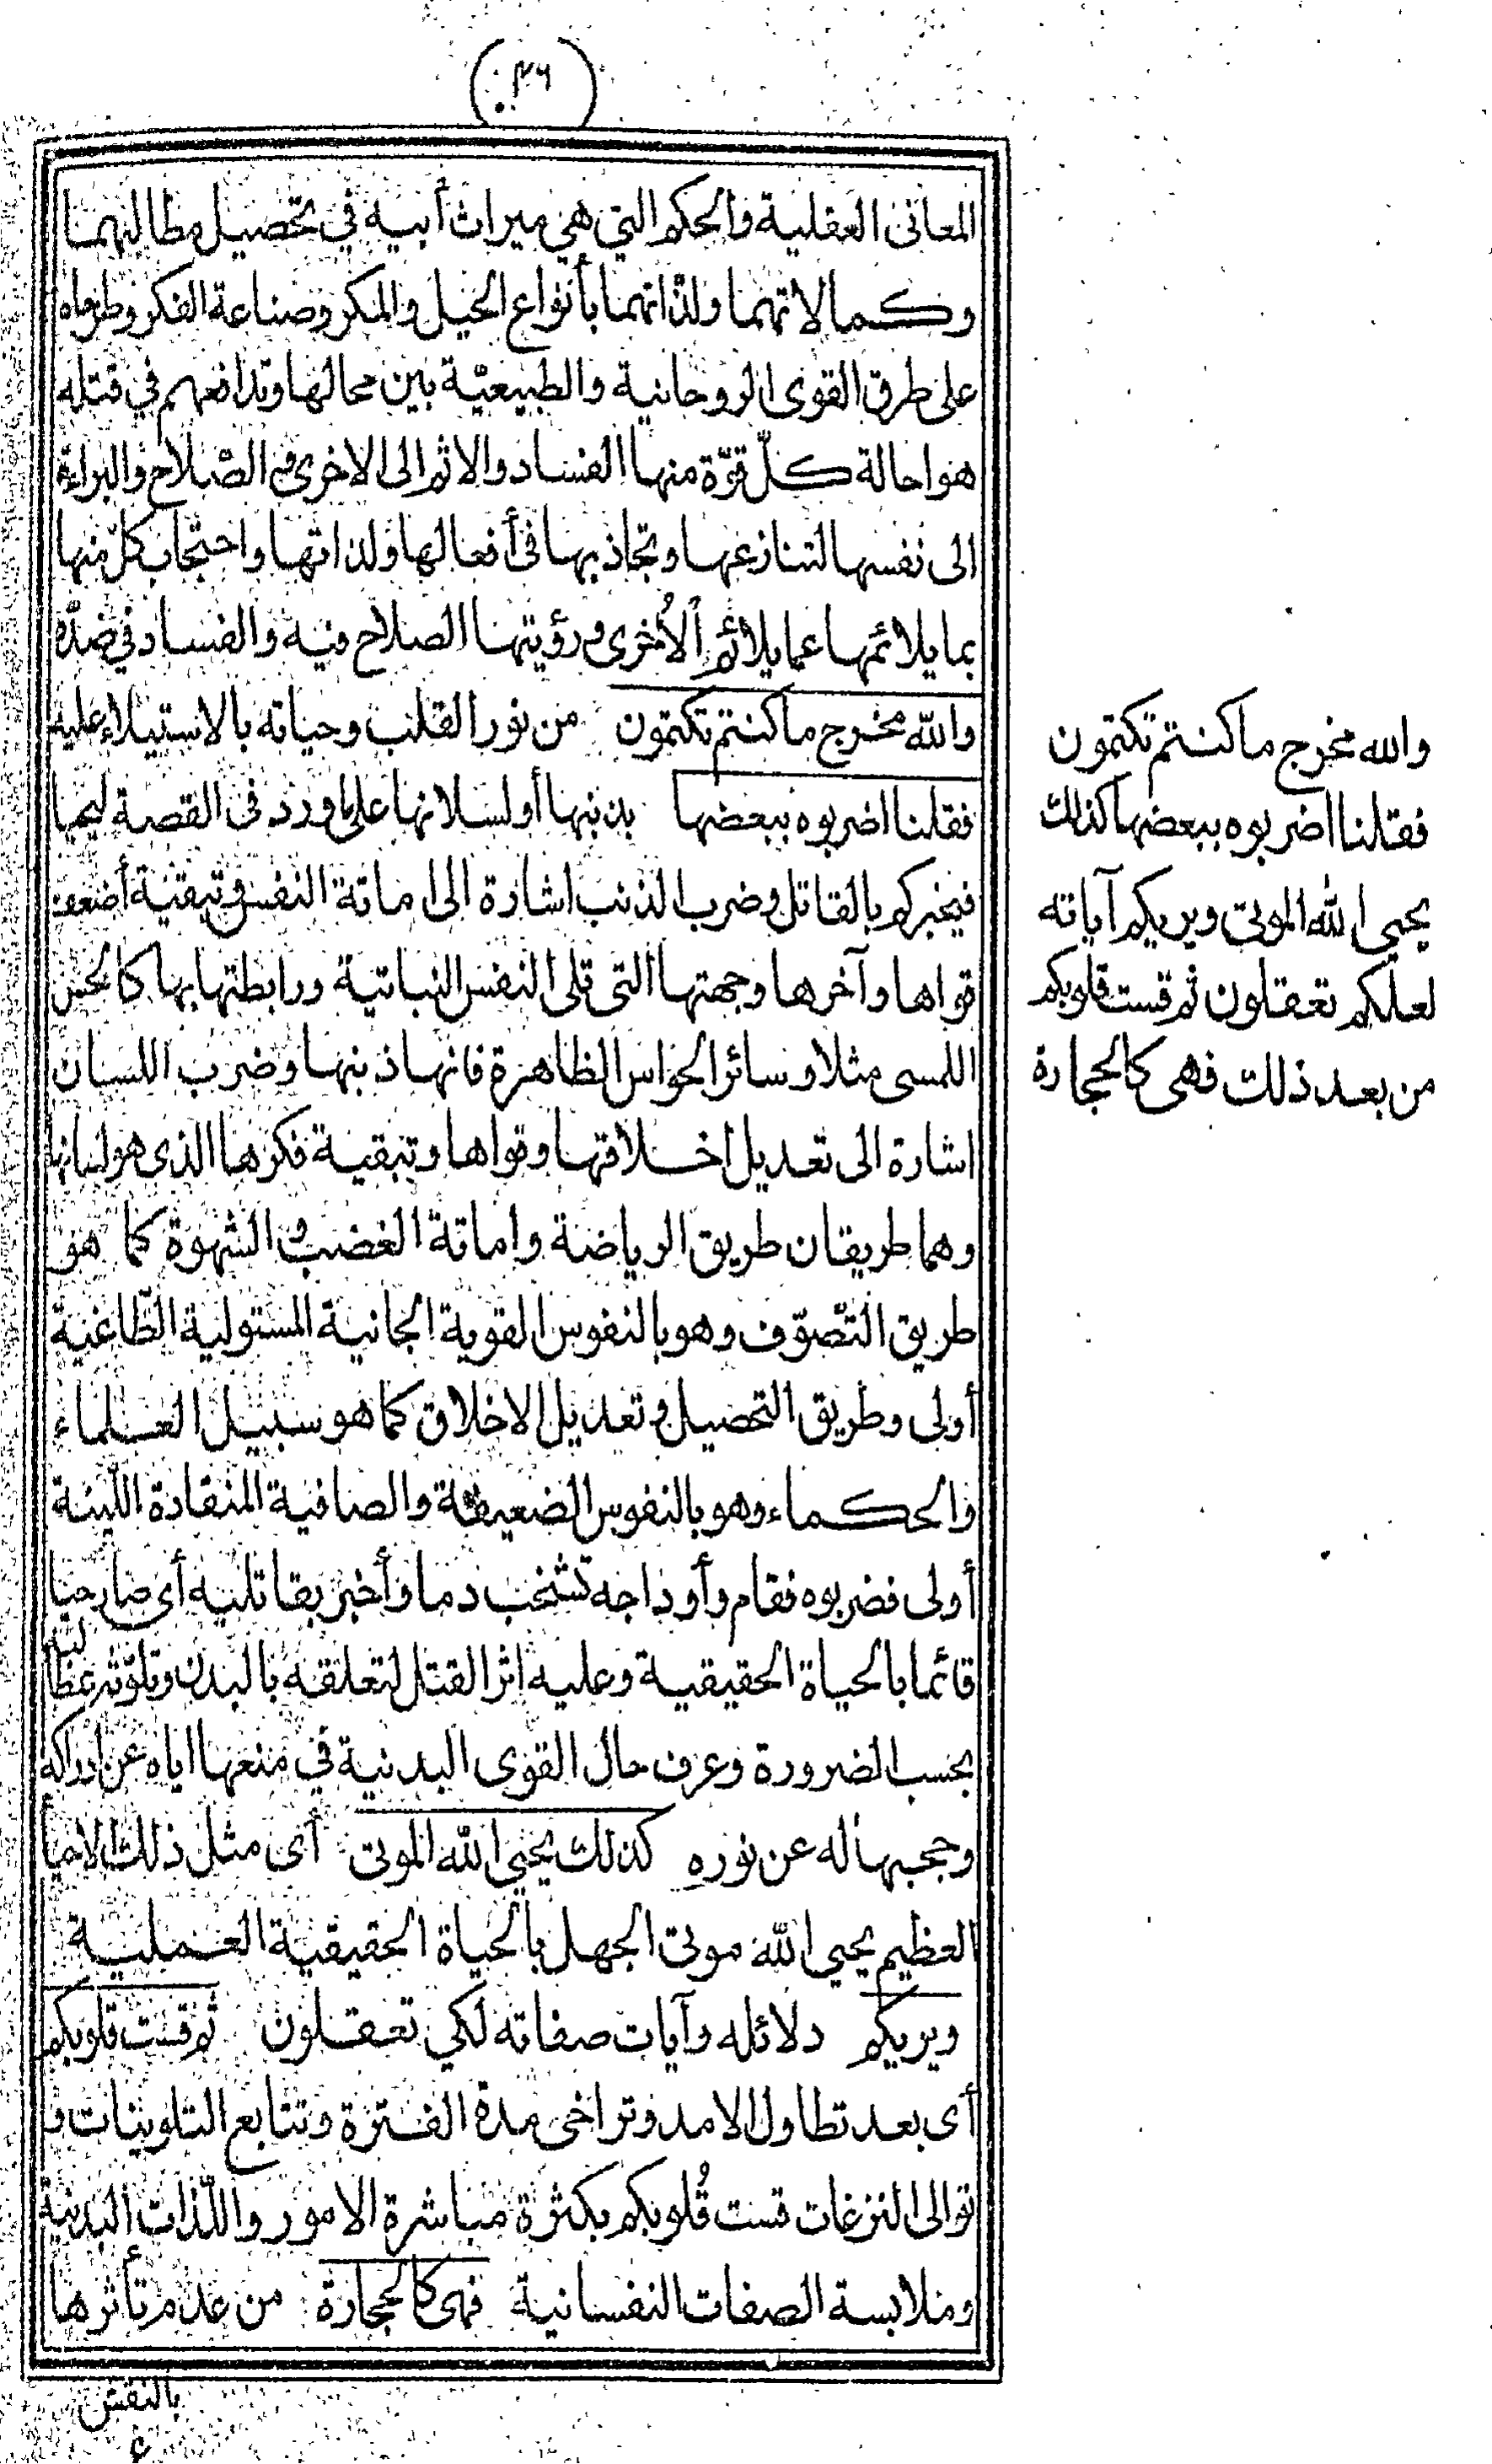 ٣٦
المعانى العقلية والحكم التى هى ميراث أبيه فى تحصيل مطالبهما
وكمالاتهما ولذاتهما بأنواع الحيل والمكر وصناعة الفكر وطرحاه
على طرق القوى الروحانية والطبيعيّة بين محالها وتدافعهم فى قتله
هو احالة كلّ قوّة منها الفساد والاثم الى الاخرى والصّلاح والبراءة
الى نفسها لتنازعها وتجاذبها فى أفعالها ولذاتها واحتجاب كل منها
بما يلائمها عما يلائم الأُخرى ورؤيتها الصلاح فيه والفساد فى ضدّه
والله مخرج ما كنتم تكتمون من نور القلب وحياته بالاستيلاء عليه
فقلنا اضربوه ببعضها بذنبها أو لسانها على ما ورد فى القصة ليحيا
فيخبركم بالقاتل وضرب الذنب اشارة الى اماتة النفس وتبقية أضعف
قواها وآخرها وجهتها التى تلى النفس النباتية ورابطتها بها كالحس
اللمسى مثلا وسائر الحواس الظاهرة فانها ذنبها وضرب اللسان
اشارة الى تعديل اخلاقها وقواها وتبقية فكرها الذى هو لسانها
وهما طريقان طريق الرياضة واماتة الغضب والشهوة كما هو
طريق التّصوّف وهو بالنفوس القوية الجانية المستولية الطّاغية
أولى وطريق التحصيل وتعديل الاخلاق كما هو سبيل العلماء
والحكماء وهو بالنفوس الضعيفة والصافية المنقادة اللّينة
أولى فضربوه فقام وأوداجه تشخب دما وأخبر بقاتليه أى صار حيا
قائما بالحياة الحقيقية وعليه اثر القتل لتعلقه بالبدن وتلوّثه بمطالبه
بحسب الضرورة وعرف حال القوى البدنية فى منعها اياه عن ادراكه
وحجبها له عن نوره كذلك يحيى الله الموتى أى مثل ذلك الاحيأ
العظيم يحيى الله موتى الجهل بالحياة الحقيقية العملية
ويريكم دلائله وآيات صفاته لكى تعقلون ثم قست قلوبكم
أى بعد تطاول الامد وتراخى مدة الفترة وتتابع التلوينات و
توالى النزغات قست قُلوبكم بكثرة مباشرة الامور واللّذات البدنية
وملابسة الصفات النفسانية فهى كالحجارة من عدم تأثرها
بالنقش
٤
والله مخرج ما كنتم تكتمون
فقلنا اضربوه ببعضها كذلك
يحيى الله الموتى ويريكم آياته
لعلكم تعقلون ثم قست قلوبكم
من بعد ذلك فهى كالحجارة